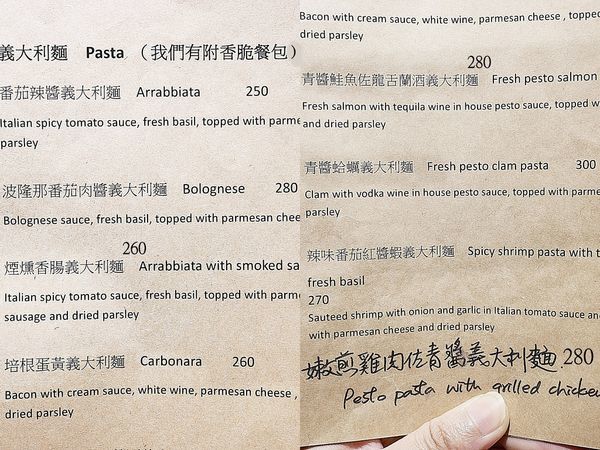 義大利麵 Pasta （我們有附香脆餐包）
番茄辣醬義大利麵 Arrabbiata 250
Italian spicy tomato sauce, fresh basil, topped with parme
parsley
波隆那番茄肉醬義大利麵 Bolognese 280
Bolognese sauce, fresh basil, topped with parmesan chee
260
煙燻香腸義大利麵 Arrabbiata with smoked sa
Italian spicy tomato sauce, fresh basil, topped with parm
sausage and dried parsley
培根蛋黃義大利麵 Carbonara 260
Bacon with cream sauce, white wine, parmesan cheese ,
dried parsley
Bacon with cream sauce, white wine, parmesan cheese , topped
dried parsley
280
青醬鮭魚佐龍舌蘭酒義大利麵 Fresh pesto salmon
Fresh salmon with tequila wine in house pesto sauce, topped w
and dried parsley
青醬蛤蠣義大利麵 Fresh pesto clam pasta 300
Clam with vodka wine in house pesto sauce, topped with parme
parsley
辣味番茄紅醬蝦義大利麵 Spicy shrimp pasta with t
fresh basil
270
Sauteed shrimp with onion and garlic in Italian tomato sauce an
with parmesan cheese and dried parsley
嫩煎雞肉佐青醬義大利麵 280
Pesto pasta with grilled chicken